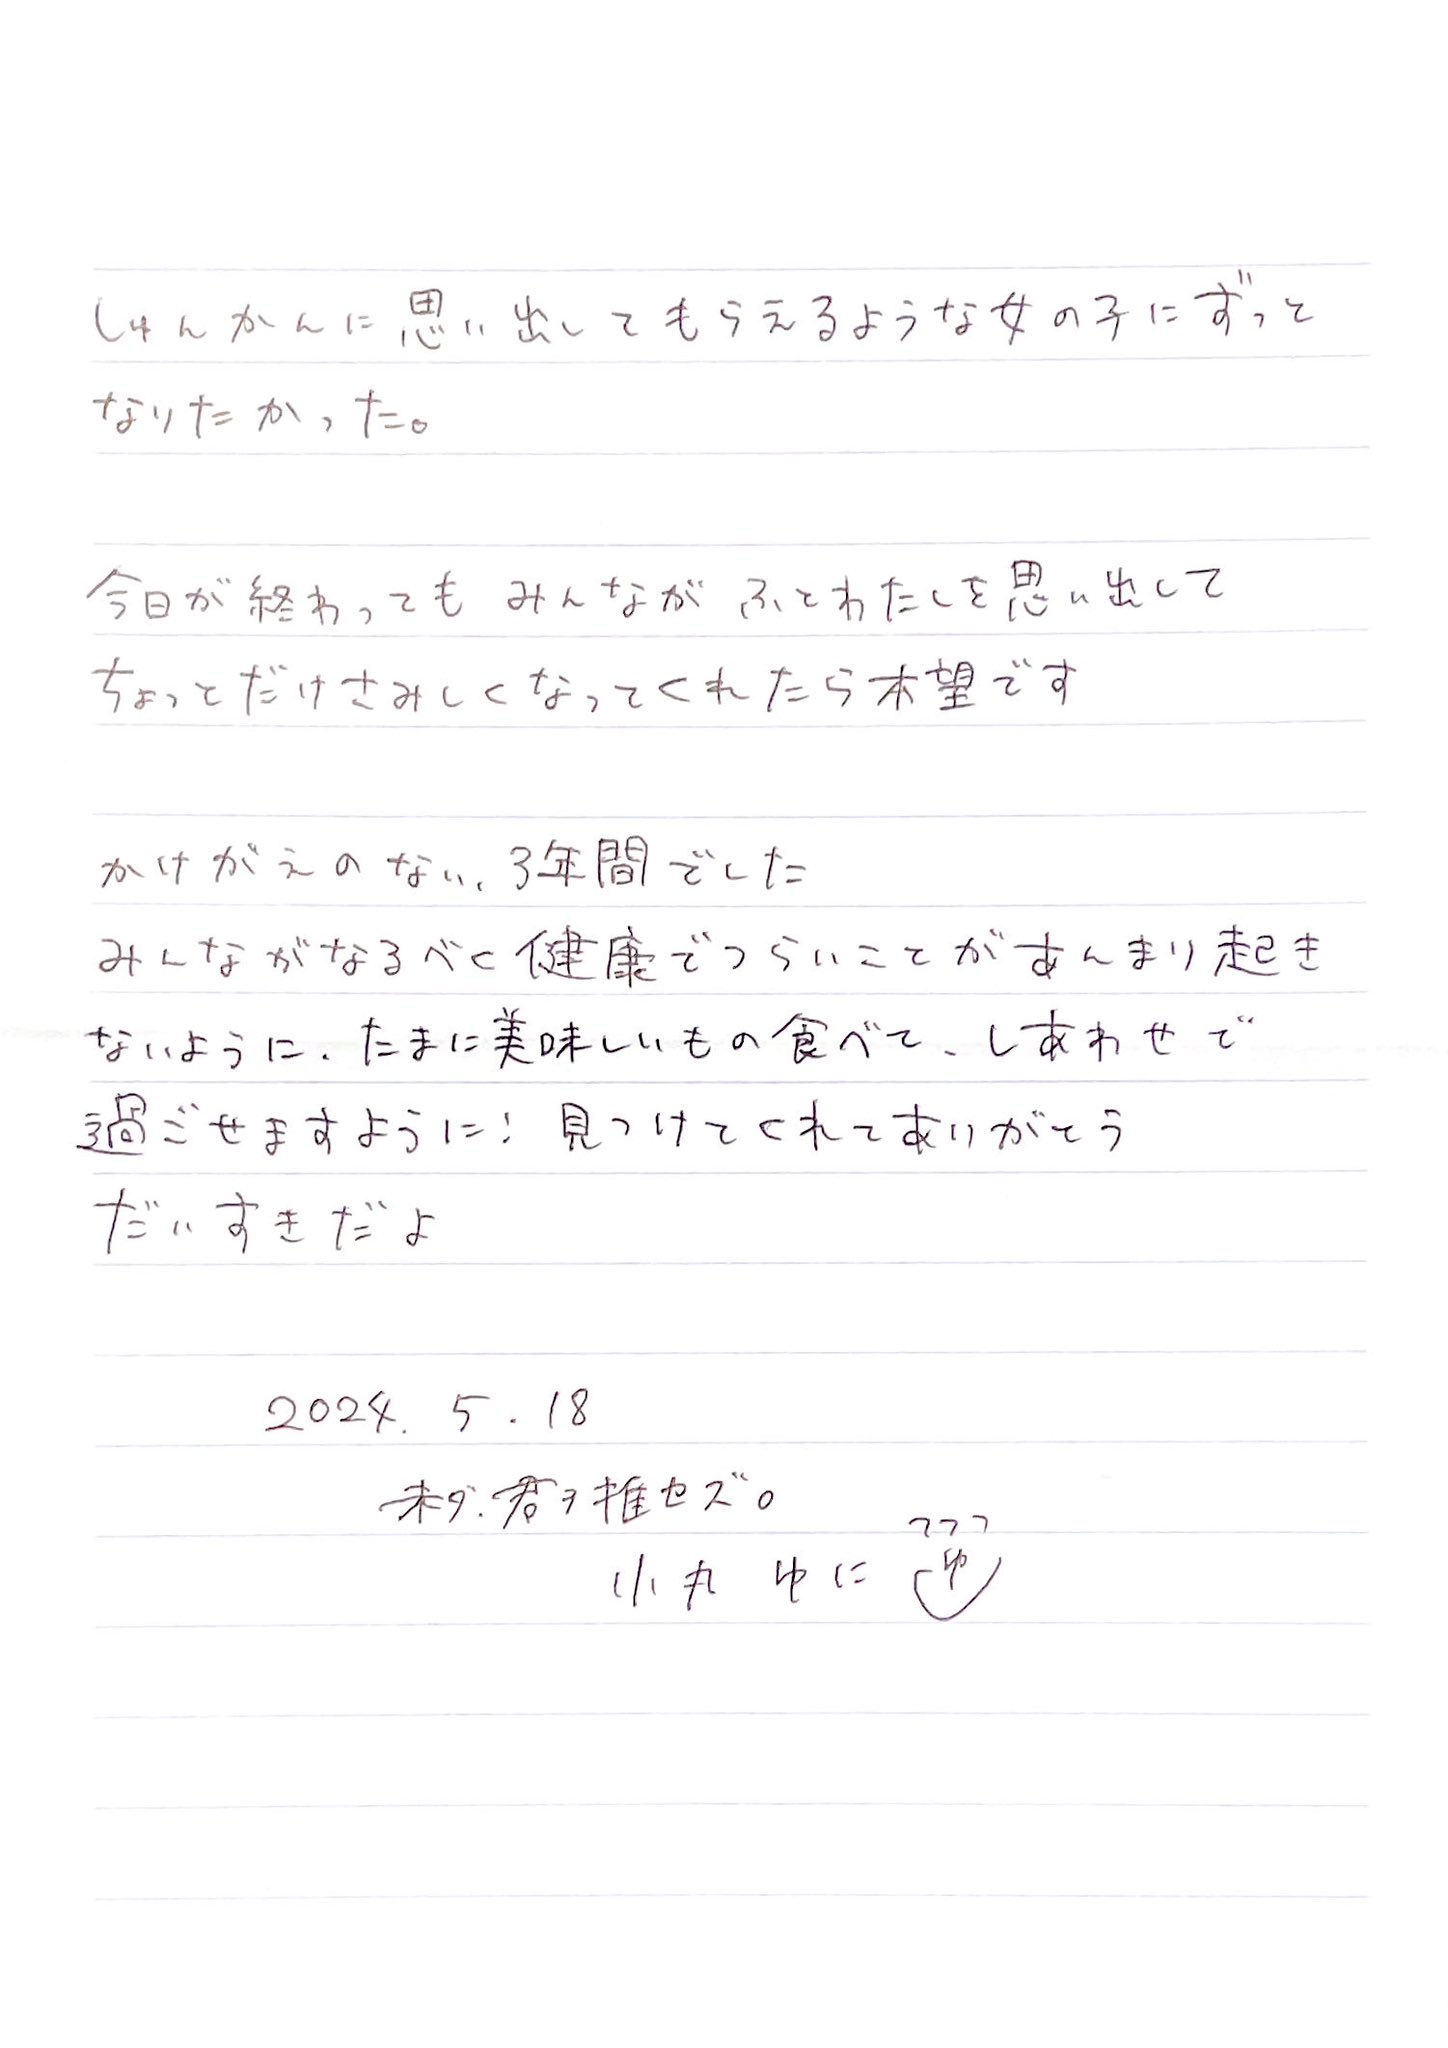 しゅんかんに思い出してもらえるような女の子にずっと
なりたかった。
今日が終わっても みんなが ふとわたしを思い出して
ちょっとだけさみしくなってくれたら本望です
かけがえのない、3年間でした
みんながなるべく健康でつらいことがあんまり起き
ないように、たまに美味しいもの食べて、しあわせで
過ごせますように! 見つけてくれてありがとう
だいすきだよ
2024. 5. 18
未ダ、君ヲ推セズ。
小丸 ゆに ゆ